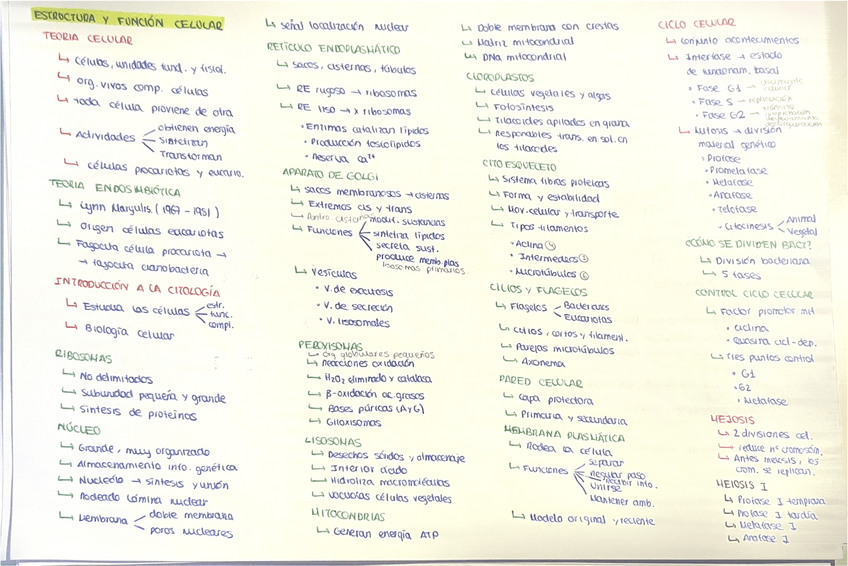 ESTRUCTURA Y FUNCIÓN CELULAR
TEORIA CELULAR
↳ Células, unidades fund. y fisiol.
↳ org. vivos comp. células
↳ Toda célula proviene de otra
↳ Actividades
obtienen energía
Sintetizan
Transforman
↳ Células procariotas y eucario.
TEORÍA ENDOSIMBIÓTICA
↳ Lynn Margulis (1967 - 1981)
↳ Origen células eucariotas
↳ Fagocita célula procariota →
→ fagocita cianobacteria
INTRODUCCIÓN A LA CITOLOGÍA
↳ Estudia las células
estr.
func.
compl.
↳ Biología celular
RIBOSOMAS
↳ No delimitados
↳ Subunidad pequeña y grande
↳ Síntesis de proteínas
NÚCLEO
↳ Grande, muy organizado
↳ Almacenamiento info. genética
↳ Nucleolo → síntesis y unión
↳ Rodeado lámina nuclear
↳ Membrana
doble membrana
poros nucleares
↳ señal localización nuclear
RETÍCULO ENDOPLASMÁTICO
↳ sacos, cisternas, túbulos
↳ RE rugoso → ribosomas
↳ RE liso → x ribosomas
• Enzimas catalizan lípidos
• Producción fosfolípidos
• Reserva Ca²⁺
APARATO DE GOLGI
↳ sacos membranosos → cisternas
↳ Extremos cis y trans
↳ Funciones
modif. sustancias
sintetiza lípidos
secreta sust.
produce memb. plas
lisosomas primarios
↳ Vesículas
• V. de exocitosis
• V. de secreción
• V. lisosomales
PEROXISOMAS
↳ Org globulares pequeños
↳ Reacciones oxidación
↳ H₂O₂ eliminado x catalasa
↳ β-oxidación ac. grasos
↳ Bases púricas (A y G)
↳ Glioxisomas
LISOSOMAS
↳ Desechos sólidos y almacenaje
↳ Interior ácido
↳ Hidroliza macromoléculas
↳ Vacuolas células vegetales
MITOCONDRIAS
↳ Generan energía ATP
↳ Doble membrana con crestas
↳ Matriz mitocondrial
↳ DNA mitocondrial
CLOROPLASTOS
↳ Células vegetales y algas
↳ Fotosíntesis
↳ Tilacoides apilados en grana
↳ Responsables trans. en. sol. en
los tilacoides
CITOESQUELETO
↳ Sistema fibras proteicas
↳ Forma y estabilidad
↳ Mov. celular y transporte
↳ Tipos filamentos
• Actina
• Intermedios
• Microtúbulos
CILIOS Y FLAGELOS
↳ Flagelos
Bacterianos
Eucariotas
↳ Cilios, cortos y filament.
↳ Parejas microtúbulos
↳ Axonema
PARED CELULAR
↳ Capa protectora
↳ Primaria y secundaria
MEMBRANA PLASMÁTICA
↳ Rodea la célula
↳ Funciones
Separar
Regular paso
Recibir info.
Unirse
Mantener amb.
↳ Modelo original y reciente
CICLO CELULAR
↳ Conjunto acontecimientos
↳ Interfase → estado
de funcionam. basal
• Fase G1 →
• Fase S → replicación
• Fase G2 →
↳ Mitosis → división
material genético
• Profase
• Prometafase
• Metafase
• Anafase
• Telofase
• Citocinesis
Animal
Vegetal
¿CÓMO SE DIVIDEN BACT?
↳ División bacteriana
↳ 5 fases
CONTROL CICLO CELULAR
↳ Factor promotor mit
• Ciclina
• Quinasa cicl-dep.
↳ Tres puntos control
• G1
• G2
• Metafase
MEIOSIS
↳ 2 divisiones cel.
↳ reduce nº cromosom.
↳ Antes meiosis, los
crom. se replican.
MEIOSIS I
↳ Profase I temprana
↳ Profase I tardía
↳ Metafase I
↳ Anafase I